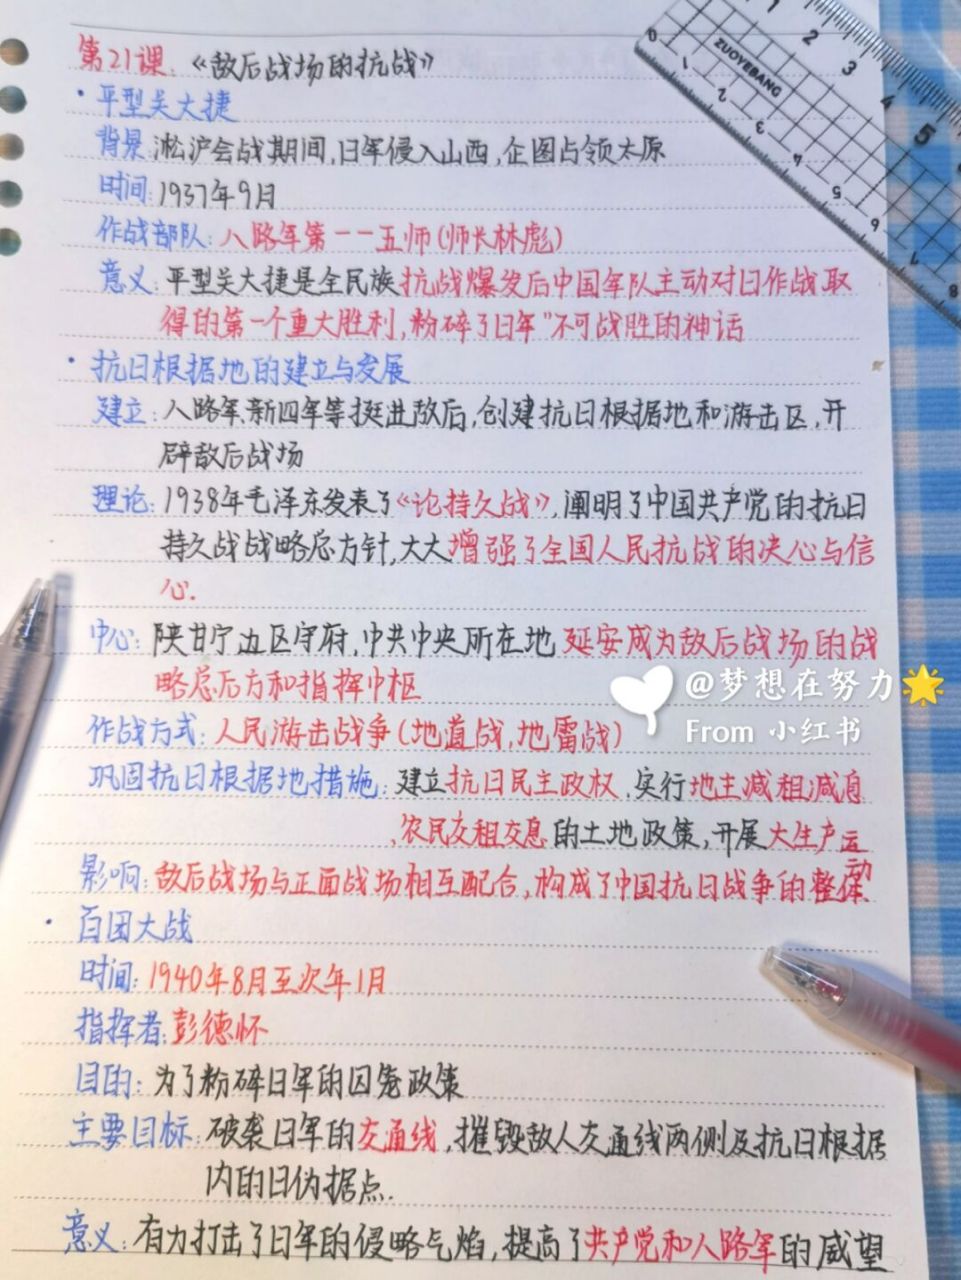 第21课:《敌后战场的抗战》
·平型关大捷
背景:淞沪会战期间,日军侵入山西,企图占领太原
时间:1937年9月
作战部队:八路军第一一五师(师长林彪)
意义:平型关大捷是全民族抗战爆发后中国军队主动对日作战取
得的第一个重大胜利,粉碎了日军"不可战胜的神话
·抗日根据地的建立与发展
建立:八路军、新四军等挺进敌后,创建抗日根据地和游击区,开
辟敌后战场
理论:1938年毛泽东发表了《论持久战》,阐明了中国共产党的抗日
持久战战略总方针,大大增强了全国人民抗战的决心与信
心.
中心:陕甘宁边区守府,中共中央所在地延安成为敌后战场的战
略总后方和指挥中枢
@梦想在努力🌟
From 小红书
作战方式:人民游击战争(地道战,地雷战)
巩固抗日根据地措施:建立抗日民主政权,实行地主减租减息
,农民交租交息的土地政策,开展大生产运
动
影响:敌后战场与正面战场相互配合,构成了中国抗日战争的整体
·百团大战
时间:1940年8月至次年1月
指挥者:彭德怀
目的:为了粉碎日军的囚笼政策
主要目标:破袭日军的交通线,摧毁敌人交通线两侧及抗日根据
内的日伪据点.
意义:有力打击了日军的侵略气焰,提高了共产党和八路军的威望
ZUOYEBANG
0 1 2 3 4 5 6 7 8
1 2 3 4 5 6